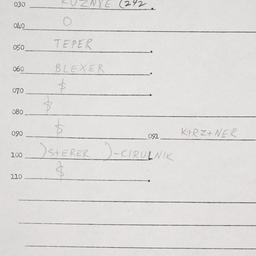 030 KUZNYE (242.
040 O
050 TEPER
060 BLEXER
070 $
080 $
090 $ 091 KIRZ+NER
100 )S+ERER )-CIRULNIK
110 $